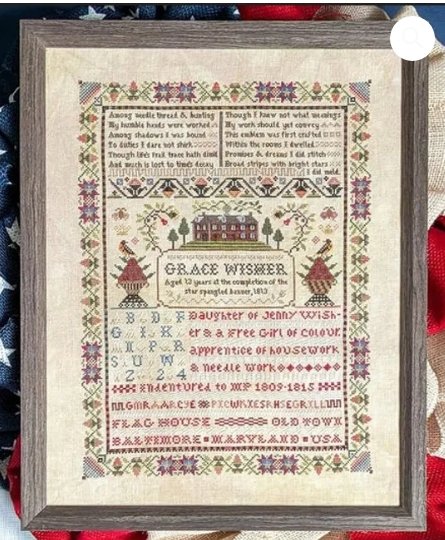 Among needle thread & bunting
My humble hands were worked
Among shadows I was bound
To duties I dare not shirk
Though life's frail trace hath dimd
And much is lost to time's decay
Though I knew not what meanings
My work should yet convey
This emblem was first crafted
Within the rooms I dwelled
Promises & dreams I did stitch
Broad stripes with bright stars
I did meld.
GRACE WISHER
Aged 13 years at the completion of the
star spangled banner, 1813
B D F Daughter of Jenny Wish-
G I K L er & a Free Girl of Colour
N P R apprentice of housework
S U W & needle work
Z 2 4
Indentured to MP 1809-1815
FLAG HOUSE OLD TOWN
BALTIMORE MARYLAND USA